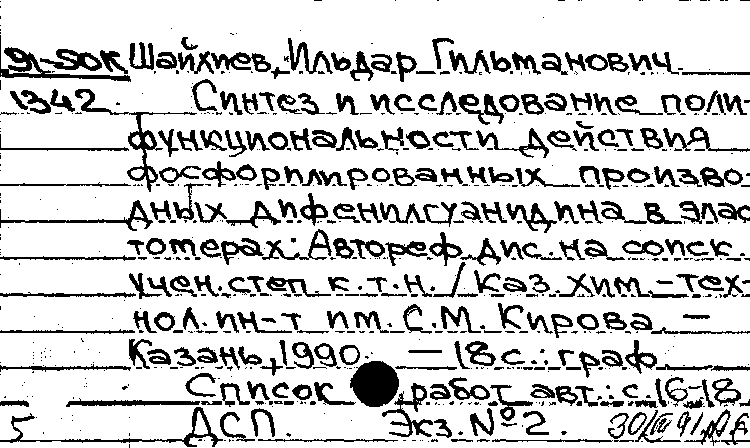 91-50К Шайхиев, Ильдар Гильманович.
1342. Синтез и исследование поли-
функциональности действия
фосфорилированных производ-
дных дифенилгуанидина в элас-
томерах: Автореф. дис. на соиск.
учен. степ. к.т.н. / Каз. хим.-тех-
нол. ин-т им. С.М. Кирова. –
Казань, 1990. – 18 с.: граф.
Список работ авт.: с. 16-18
5 ДСП. Экз. № 2.